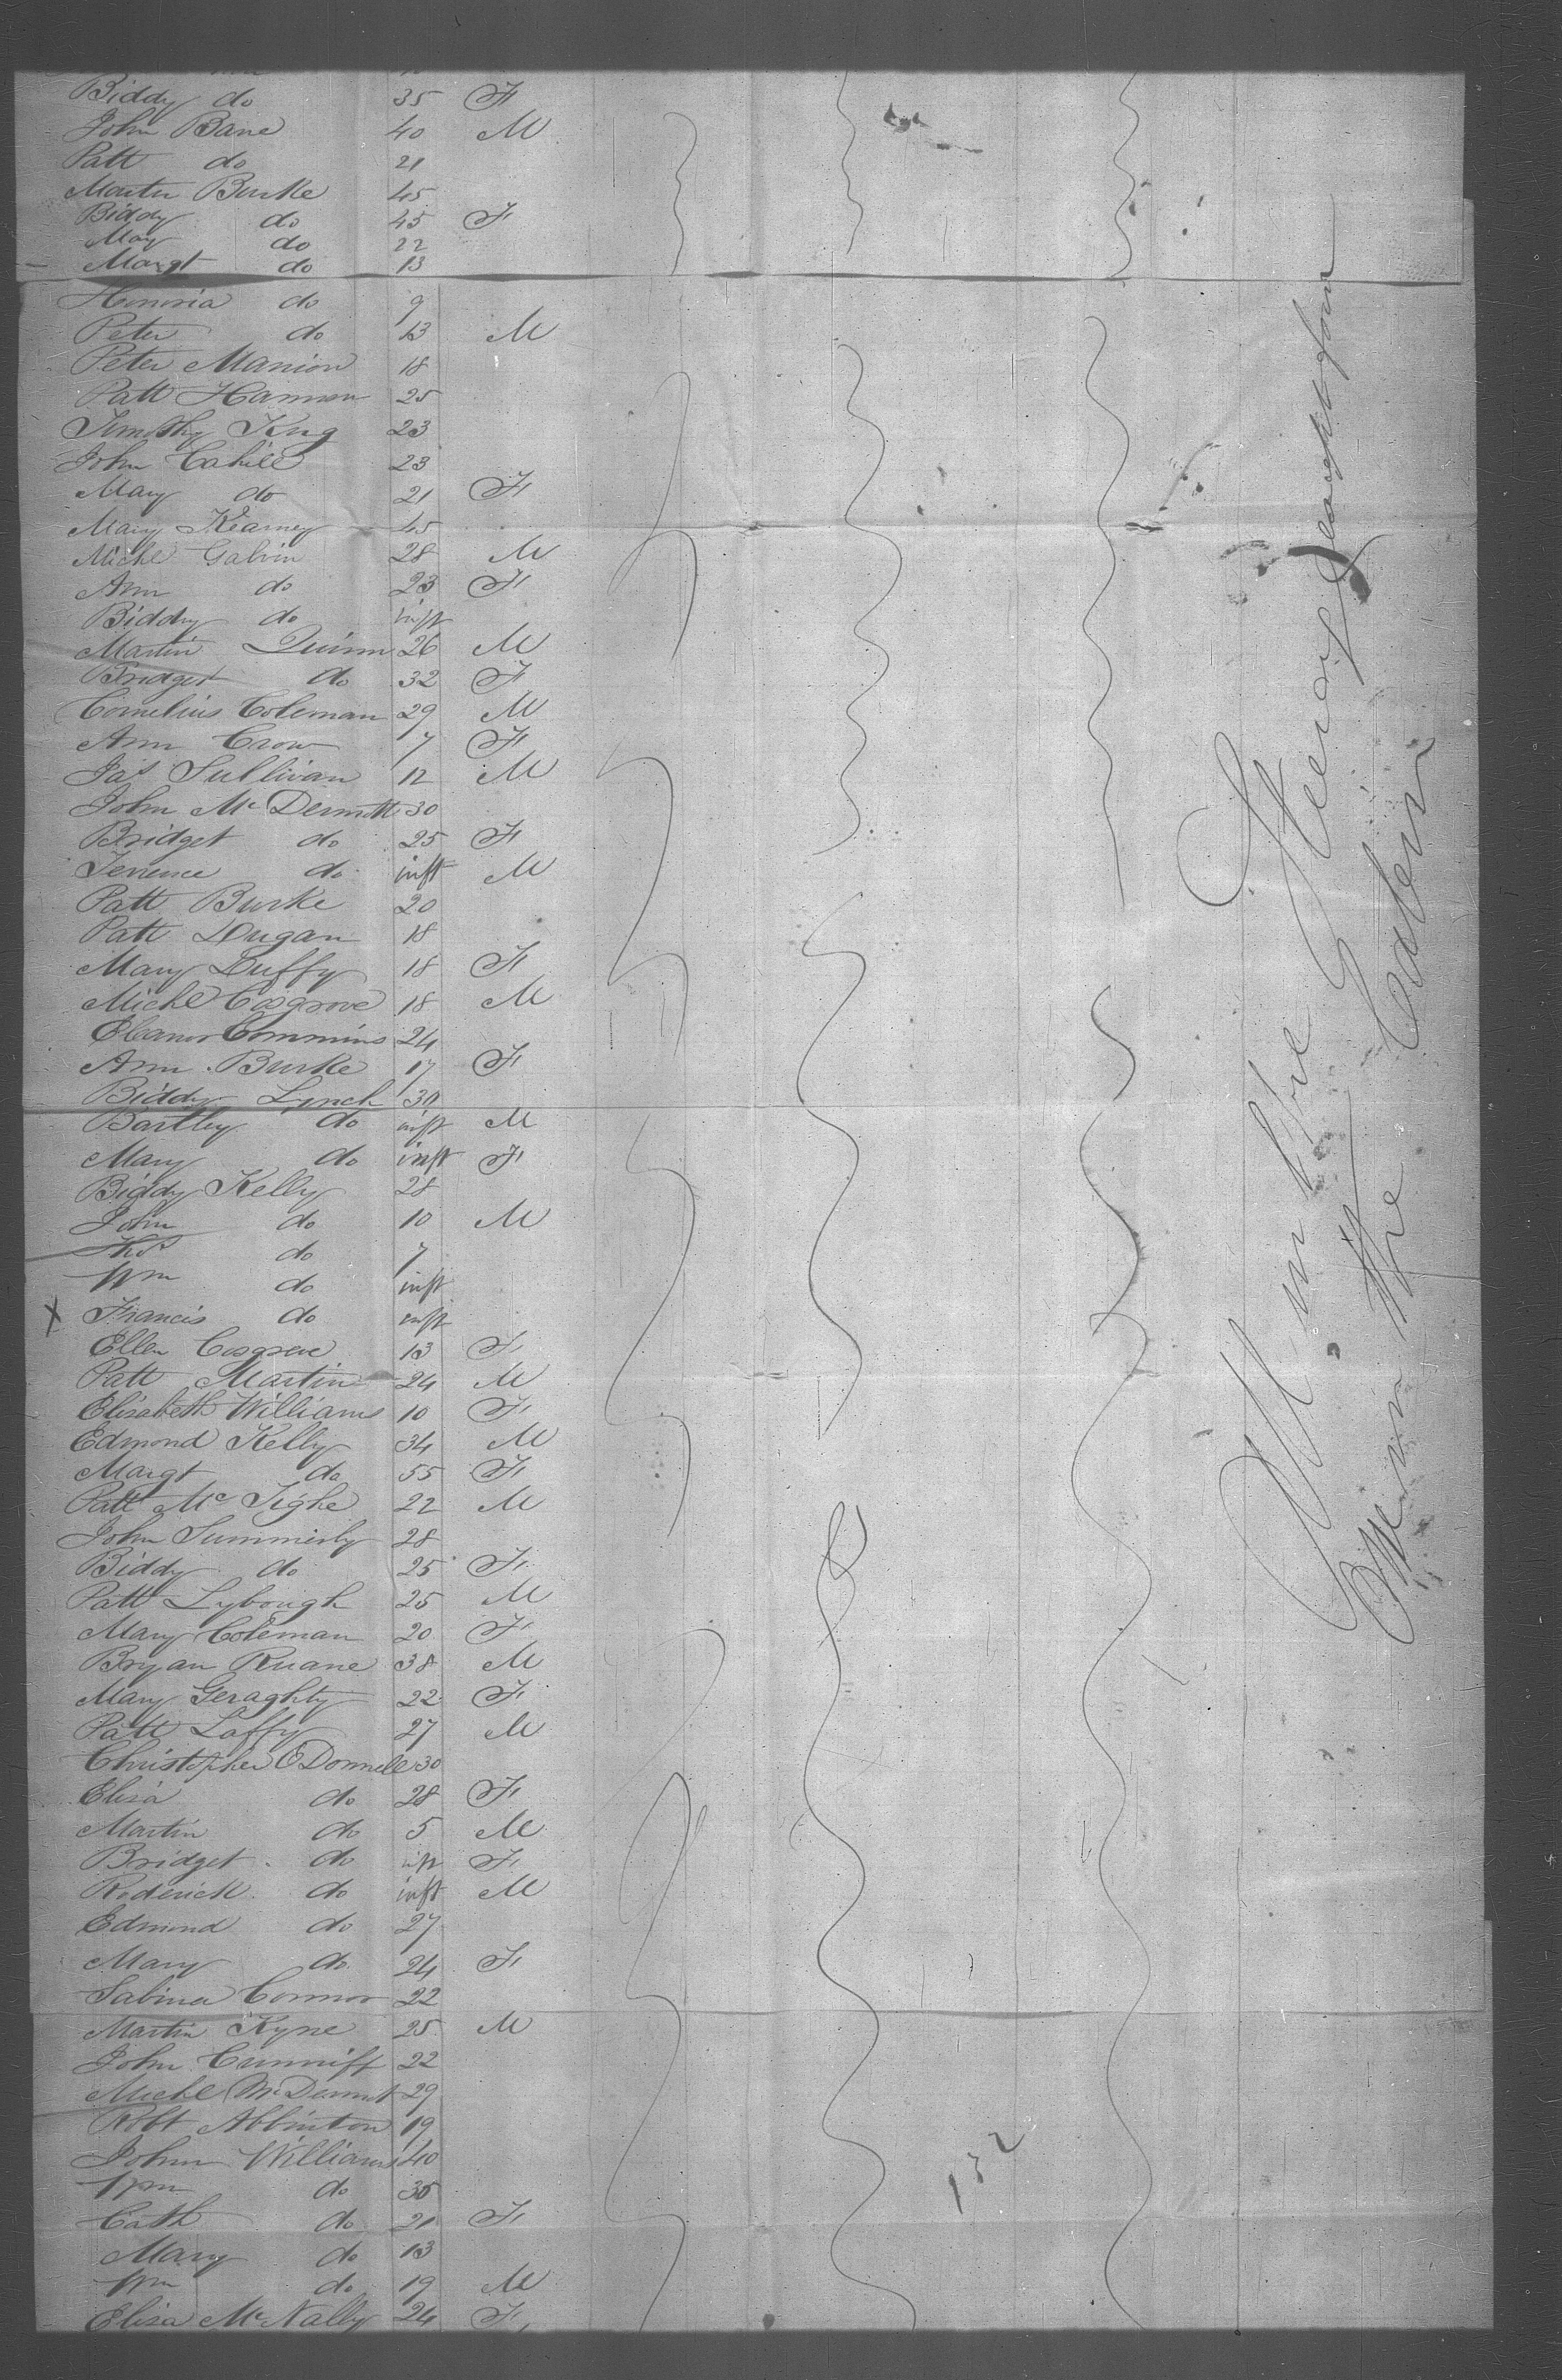 Biddy do 35 F
John Bane 40 M
Patt do 21
Martin Burke 45
Biddy do 45 F
May do 22
Margt do 13
Honoria do 9
Peter do 13 M
Peter Manion 18
Patt Hannon 25
Timothy King 23
John Cahill 23
Mary do 21 F
Mary Kearney 45
Michl Galvin 28 M
Ann do 23 F
Biddy do inft
Martin Quinn 26 M
Bridget do 32 F
Cornelius Coleman 29 M
Ann Crow 7 F
Jas Sullivan 12 M
John McDermott 30
Bridget do 25 F
Terence do inft M
Patt Burke 20
Patt Dugan 18
Mary Duffy 18 F
Michl Cosgrove 18 M
Eleanor Commins 24
Ann Burke 17 F
Biddy Lynch 30
Bartley do inft M
Mary do inft F
Biddy Kelly 28
John do 10 M
Thos do 7
Wm do inft
X Francis do inft
Ellen Cosgrove 13 F
Patt Martin 24 M
Elizabeth Williams 10 F
Edmond Kelly 34 M
Margt do 55 F
Patt McTighe 22 M
John Summerly 28
Biddy do 25 F
Patt Lybough 25 M
Mary Coleman 20 F
Bryan Ruane 38 M
Mary Geraghty 22 F
Patt Laffy 27 M
Christopher O'Donnell 30
Eliza do 28 F
Martin do 5 M
Bridget do inft F
Roderick do inft M
Edmond do 27
Mary do 24 F
Sabina Connor 22
Martin Kyne 25 M
John Cunniff 22
Michl McDermot 29
Robt Abbinton 19
John Williams 40
Wm do 35
Cath do 21 F
Mary do 13
Wm do 19 M
Eliza McNally 24 F
132
All in the Steerage
in the